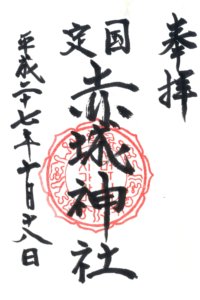 奉拝
国定
赤城神社
平成二十七年十月十八日